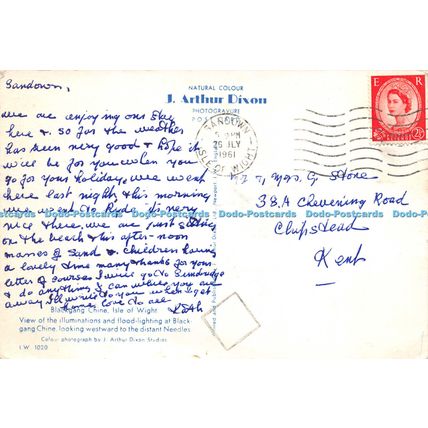 Sandown,
we are enjoying our stay
here & so far the weather
has been very good & hope it
will be for you when you
go for your holiday, we went
here last night, & this morning
we went to Ryde its very
nice there, we are just sitting
on the beach this after-noon
masses of sand & children having
a lovely time many thanks for your
letter of course I will go to
& do anything I can while you are
away I'll write to you when I get
home, love to all
NATURAL COLOUR
J. Arthur Dixon
PHOTOGRAVURE
POSTCARD
SANDOWN
PM
26 JLY
1961
ISLE OF WIGHT
E R
2½
Mr & Mrs G Stone
38A Chevening Road
Chipstead
Kent
Dodo-Postcards Dodo-Postcards Dodo-Postcards Dodo-Postcards Dodo-Postcards
Blackgang Chine, Isle of Wight
View of the illuminations and flood-lighting at Black-
gang Chine, looking westward to the distant Needles
Colour photograph by J. Arthur Dixon Studios
I.W. 1020